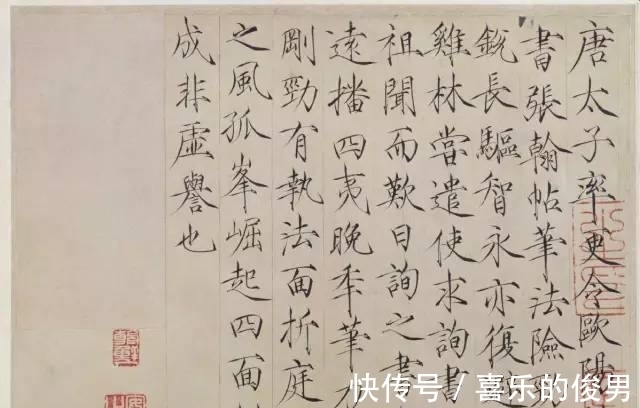 唐太子率更令歐陽
書張翰帖筆法險
鋭長驅智永亦復避
雞林當遣使求詢書
祖聞而歎曰詢之書
遠播四夷晚年筆力
剛勁有執法面折庭
之風孤峯崛起四面
成非虛譽也
快传号 / 喜乐的俊男